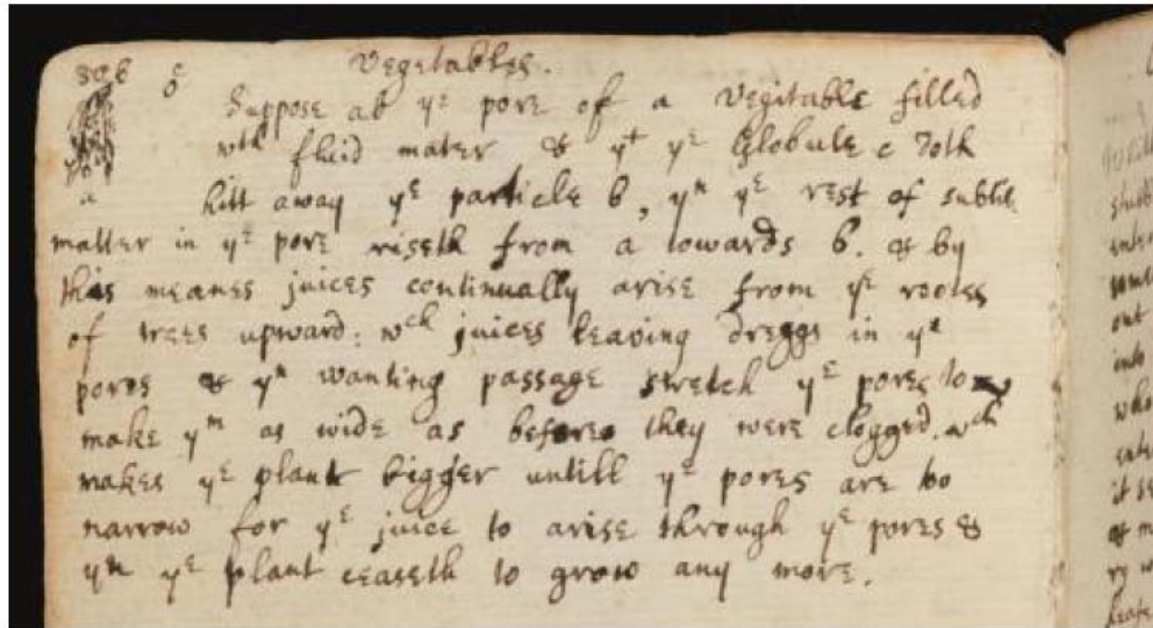 Vegetables.
Suppose ab yͤ pore of a Vegitable filled
wᵗʰ fluid mater & yᵗ yͤ Globule c doth
hitt away yͤ particle b, yⁿ yͤ rest of subtil
matter in yͤ pore riseth from a towards b. & by
this meanes juices continually arise from yͤ rootes
of trees upward: wᶜʰ juices leaving dreggs in yͤ
pores & yⁿ wanting passage stretch yͤ pores to
make yᵐ as wide as before they were clogged. wᶜʰ
makes yͤ plant bigger untill yͤ pores are too
narrow for yͤ juice to arise through yͤ pores &
yⁿ yͤ plant ceaseth to grow any more.